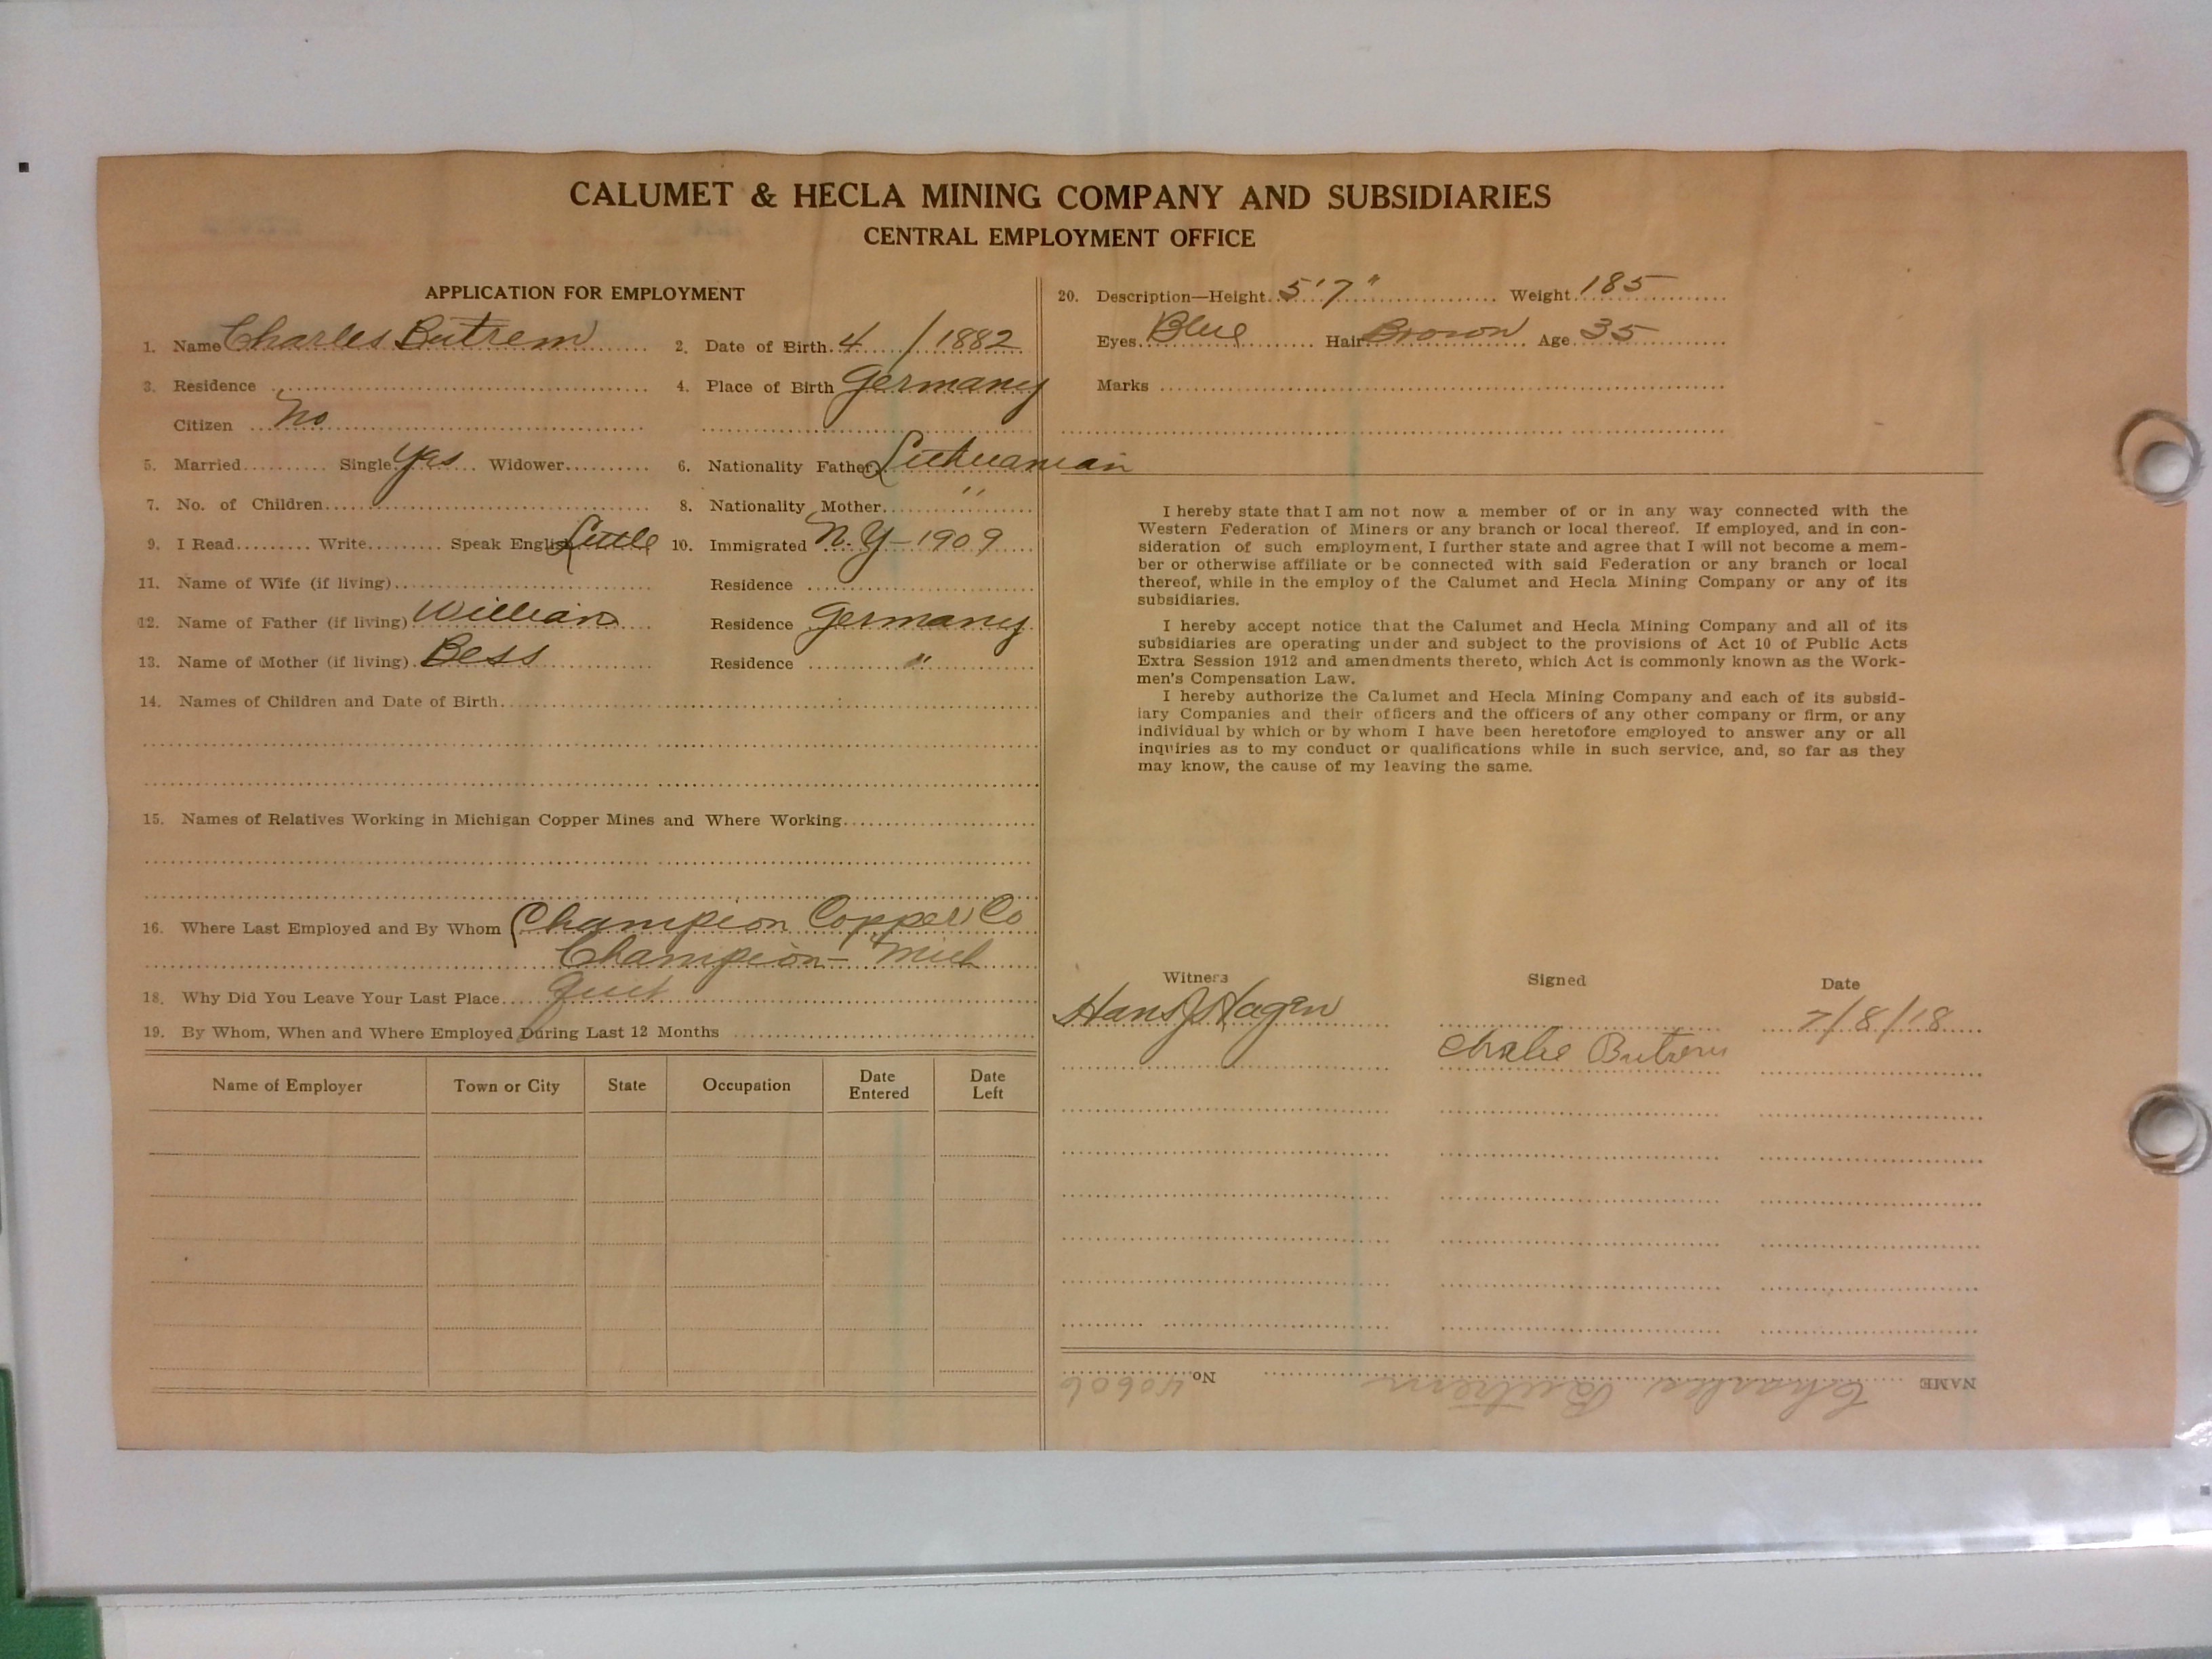 CALUMET & HECLA MINING COMPANY AND SUBSIDIARIES
CENTRAL EMPLOYMENT OFFICE
APPLICATION FOR EMPLOYMENT
1. Name Charles Butrem 2. Date of Birth 4 / 1882
3. Residence 4. Place of Birth Germany
Citizen No
5. Married Single Yes Widower 6. Nationality Father Lithuanian
7. No. of Children 8. Nationality Mother "
9. I Read Write Speak English Little 10. Immigrated N.Y - 1909
11. Name of Wife (if living) Residence
12. Name of Father (if living) William Residence Germany
13. Name of Mother (if living) Bess Residence "
14. Names of Children and Date of Birth
15. Names of Relatives Working in Michigan Copper Mines and Where Working
16. Where Last Employed and By Whom Champion Copper Co
Champion - Mich
18. Why Did You Leave Your Last Place Quit
19. By Whom, When and Where Employed During Last 12 Months
Name of Employer Town or City State Occupation Date Entered Date Left
20. Description—Height 5'7" Weight 185
Eyes Blue Hair Brown Age 35
Marks
I hereby state that I am not now a member of or in any way connected with the
Western Federation of Miners or any branch or local thereof. If employed, and in con-
sideration of such employment, I further state and agree that I will not become a mem-
ber or otherwise affiliate or be connected with said Federation or any branch or local
thereof, while in the employ of the Calumet and Hecla Mining Company or any of its
subsidiaries.
I hereby accept notice that the Calumet and Hecla Mining Company and all of its
subsidiaries are operating under and subject to the provisions of Act 10 of Public Acts
Extra Session 1912 and amendments thereto, which Act is commonly known as the Work-
men's Compensation Law.
I hereby authorize the Calumet and Hecla Mining Company and each of its subsid-
iary Companies and their officers and the officers of any other company or firm, or any
individual by which or by whom I have been heretofore employed to answer any or all
inquiries as to my conduct or qualifications while in such service, and, so far as they
may know, the cause of my leaving the same.
Witness Signed Date
Hans J Hagen 7/8/18
Butrem
NAME Charles Butrem No. 40606